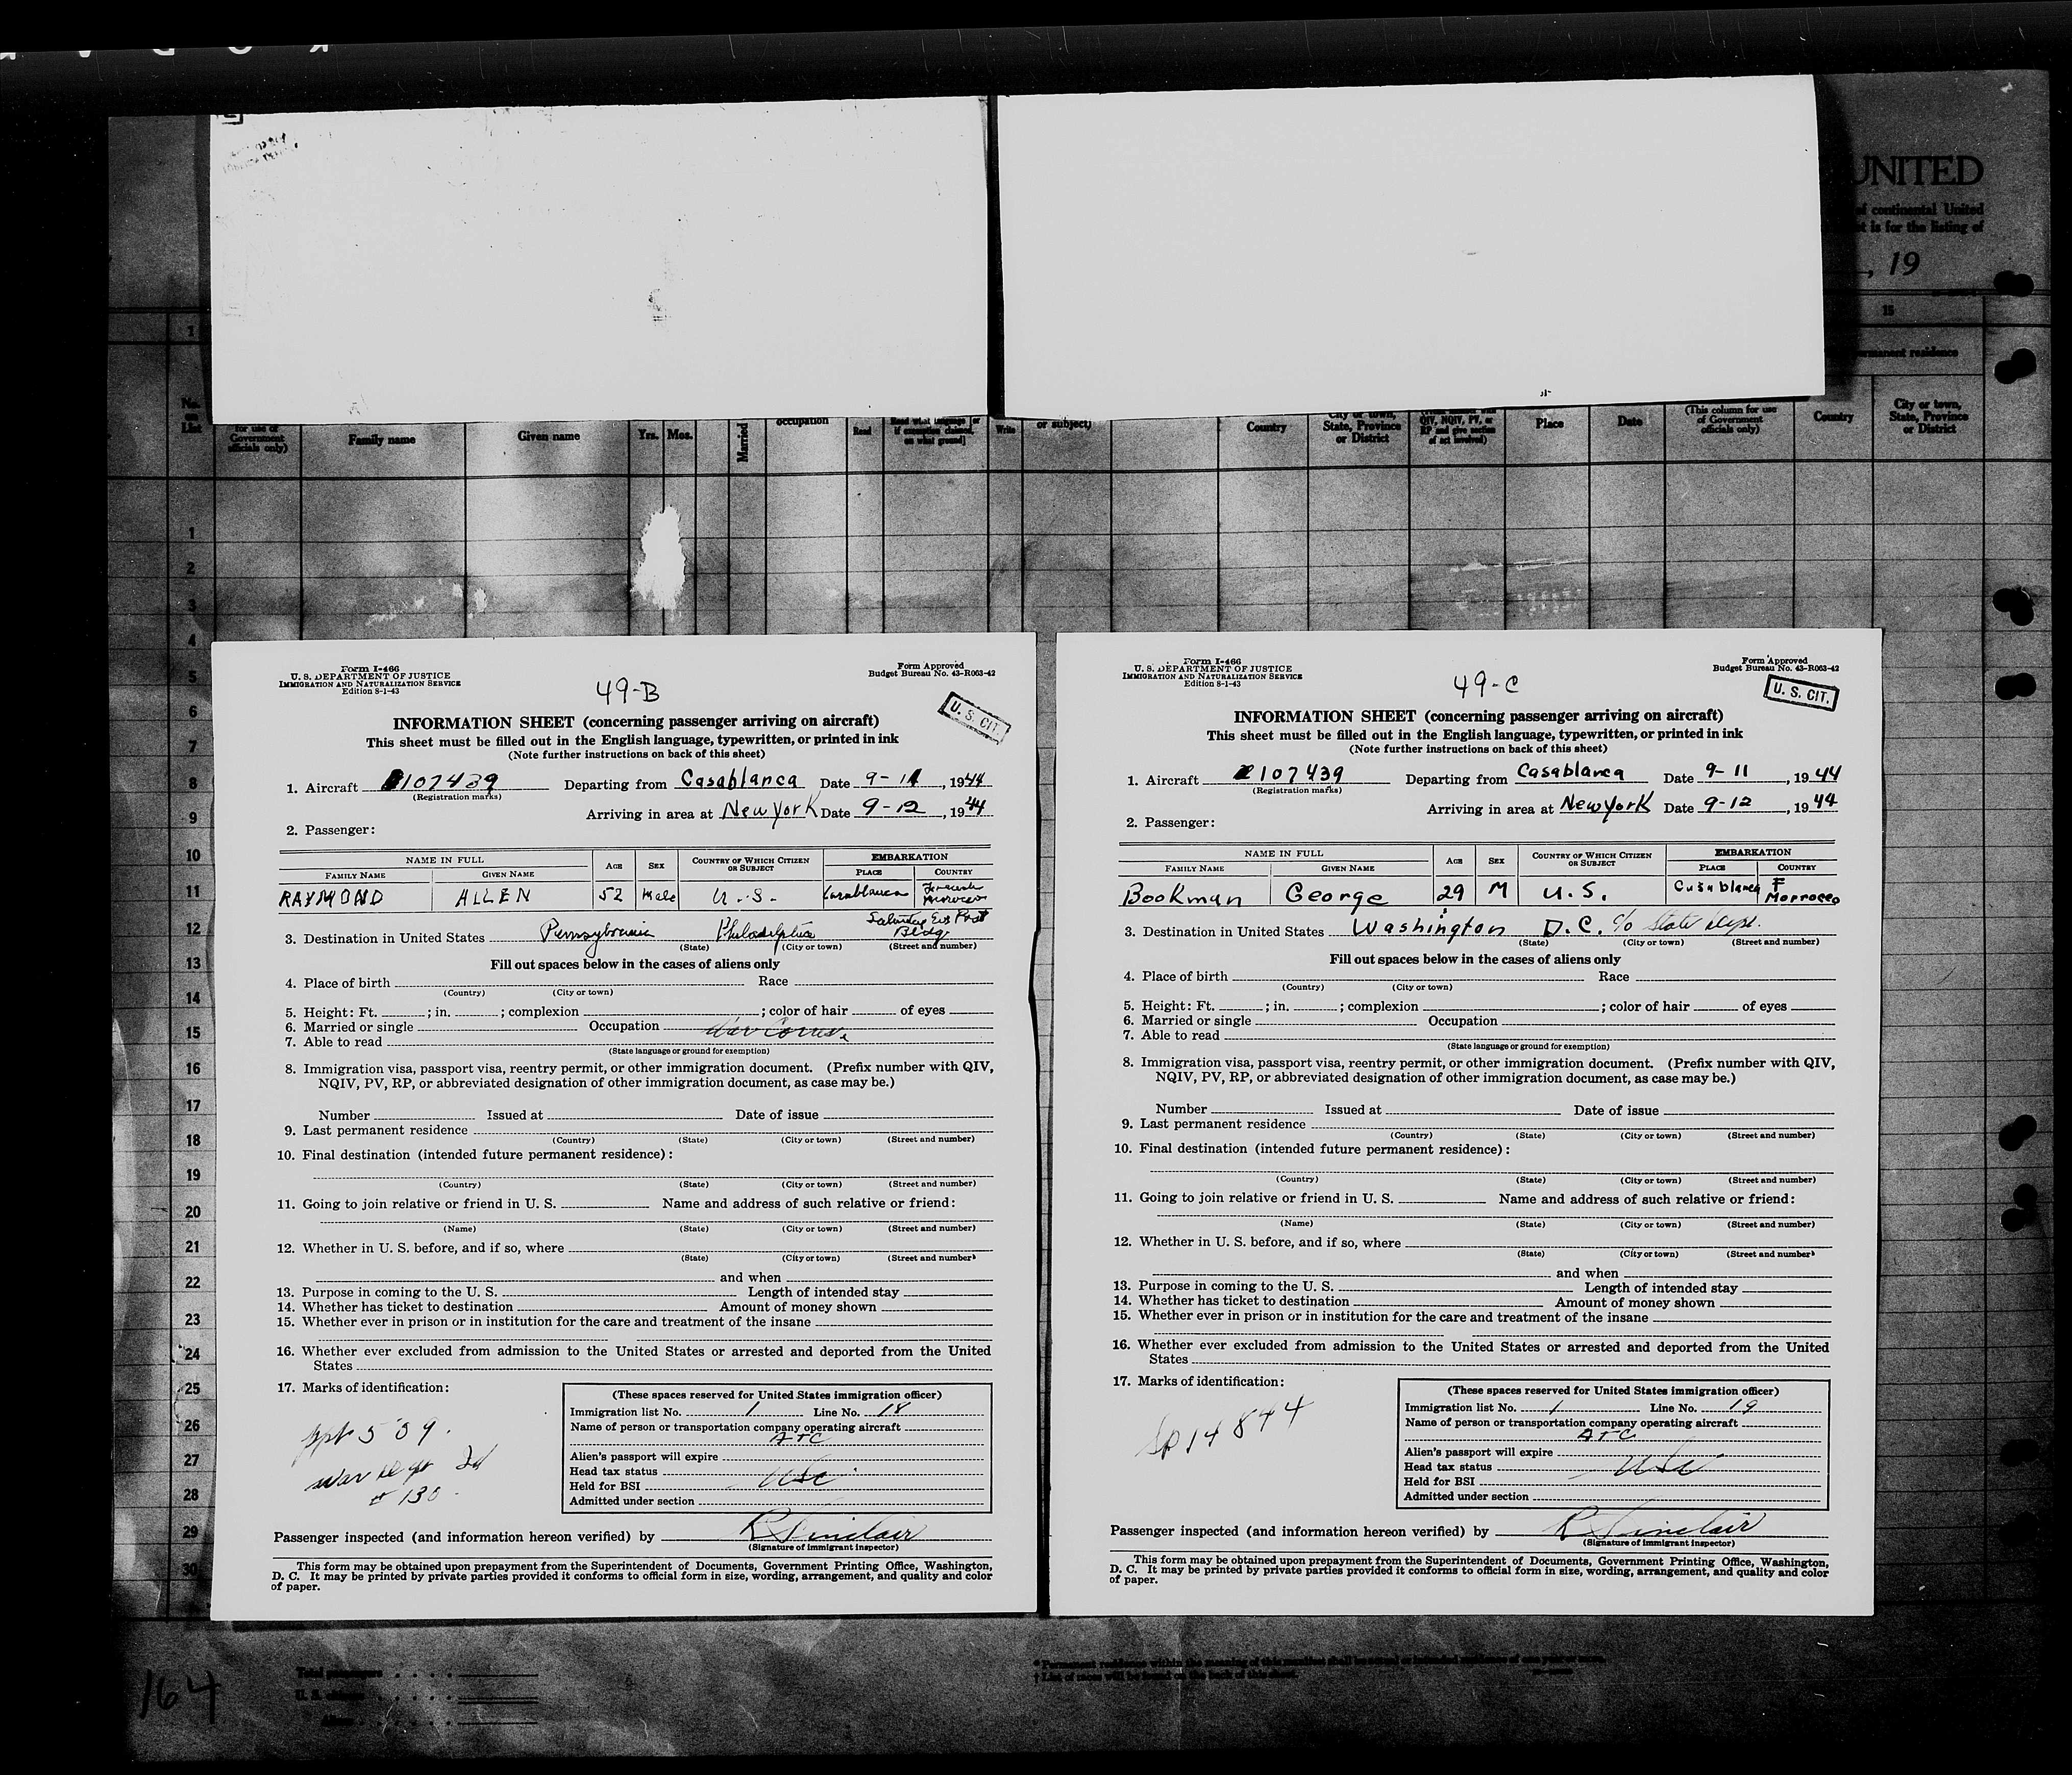 UNITED
of continental United
is for the listing of
, 19
15
1
permanent residence
No.
on
List
for use of
Government
officials only)
Family name
Given name
Yrs.
Mos.
Married
occupation
Read
Read what language [or
if exemption claimed,
on what ground]
Write
or subject)
Country
City or town,
State, Province
or District
QIV, NQIV, PV, or
RP and give section
of act involved)
Place
Date
(This column for use
of Government
officials only)
Country
City or town,
State, Province
or District
1
2
3
4
5
6
7
8
9
10
11
12
13
14
15
16
17
18
19
20
21
22
23
24
25
26
27
28
29
30
Form I-466
U. S. DEPARTMENT OF JUSTICE
IMMIGRATION AND NATURALIZATION SERVICE
Edition 8-1-43
49-B
Form Approved
Budget Bureau No. 43-R063-42
U. S. CIT.
INFORMATION SHEET (concerning passenger arriving on aircraft)
This sheet must be filled out in the English language, typewritten, or printed in ink
(Note further instructions on back of this sheet)
1. Aircraft 107439 Departing from Casablanca Date 9-11, 1944
(Registration marks)
Arriving in area at New York Date 9-12, 1944
2. Passenger:
NAME IN FULL AGE SEX COUNTRY OF WHICH CITIZEN OR SUBJECT EMBARKATION
FAMILY NAME GIVEN NAME PLACE COUNTRY
RAYMOND ALLEN 52 Male U.S. Casablanca French Morocco
3. Destination in United States Pennsylvania Philadelphia Saturday Eve Post Bldg.
(State) (City or town) (Street and number)
Fill out spaces below in the cases of aliens only
4. Place of birth Race
(Country) (City or town)
5. Height: Ft. ; in. ; complexion ; color of hair of eyes
6. Married or single Occupation War Corres.
7. Able to read
(State language or ground for exemption)
8. Immigration visa, passport visa, reentry permit, or other immigration document. (Prefix number with QIV,
NQIV, PV, RP, or abbreviated designation of other immigration document, as case may be.)
Number Issued at Date of issue
9. Last permanent residence
(Country) (State) (City or town) (Street and number)
10. Final destination (intended future permanent residence):
(Country) (State) (City or town) (Street and number)
11. Going to join relative or friend in U. S. Name and address of such relative or friend:
(Name) (State) (City or town) (Street and number)
12. Whether in U. S. before, and if so, where
(State) (City or town) (Street and number)
and when
13. Purpose in coming to the U. S. Length of intended stay
14. Whether has ticket to destination Amount of money shown
15. Whether ever in prison or in institution for the care and treatment of the insane
16. Whether ever excluded from admission to the United States or arrested and deported from the United
States
17. Marks of identification:
War Dept Id
# 130
(These spaces reserved for United States immigration officer)
Immigration list No. 1 Line No. 18
Name of person or transportation company operating aircraft
ATC
Alien's passport will expire
Head tax status USC
Held for BSI
Admitted under section
Passenger inspected (and information hereon verified) by R Sinclair
(Signature of immigrant inspector)
This form may be obtained upon prepayment from the Superintendent of Documents, Government Printing Office, Washington,
D. C. It may be printed by private parties provided it conforms to official form in size, wording, arrangement, and quality and color
of paper.
Form I-466
U. S. DEPARTMENT OF JUSTICE
IMMIGRATION AND NATURALIZATION SERVICE
Edition 8-1-43
49-C
Form Approved
Budget Bureau No. 43-R063-42
U. S. CIT.
INFORMATION SHEET (concerning passenger arriving on aircraft)
This sheet must be filled out in the English language, typewritten, or printed in ink
(Note further instructions on back of this sheet)
1. Aircraft 107439 Departing from Casablanca Date 9-11, 1944
(Registration marks)
Arriving in area at New York Date 9-12, 1944
2. Passenger:
NAME IN FULL AGE SEX COUNTRY OF WHICH CITIZEN OR SUBJECT EMBARKATION
FAMILY NAME GIVEN NAME PLACE COUNTRY
Bookman George 29 M U.S. Casablanca F Morrocco
3. Destination in United States Washington D.C. c/o State Dept.
(State) (City or town) (Street and number)
Fill out spaces below in the cases of aliens only
4. Place of birth Race
(Country) (City or town)
5. Height: Ft. ; in. ; complexion ; color of hair of eyes
6. Married or single Occupation
7. Able to read
(State language or ground for exemption)
8. Immigration visa, passport visa, reentry permit, or other immigration document. (Prefix number with QIV,
NQIV, PV, RP, or abbreviated designation of other immigration document, as case may be.)
Number Issued at Date of issue
9. Last permanent residence
(Country) (State) (City or town) (Street and number)
10. Final destination (intended future permanent residence):
(Country) (State) (City or town) (Street and number)
11. Going to join relative or friend in U. S. Name and address of such relative or friend:
(Name) (State) (City or town) (Street and number)
12. Whether in U. S. before, and if so, where
(State) (City or town) (Street and number)
and when
13. Purpose in coming to the U. S. Length of intended stay
14. Whether has ticket to destination Amount of money shown
15. Whether ever in prison or in institution for the care and treatment of the insane
16. Whether ever excluded from admission to the United States or arrested and deported from the United
States
17. Marks of identification:
SP 14844
(These spaces reserved for United States immigration officer)
Immigration list No. 1 Line No. 19
Name of person or transportation company operating aircraft
ATC
Alien's passport will expire
Head tax status USC
Held for BSI
Admitted under section
Passenger inspected (and information hereon verified) by R Sinclair
(Signature of immigrant inspector)
This form may be obtained upon prepayment from the Superintendent of Documents, Government Printing Office, Washington,
D. C. It may be printed by private parties provided it conforms to official form in size, wording, arrangement, and quality and color
of paper.
164
Total passengers
U. S. citizens
Aliens
† List of races will be found on the back of this sheet.